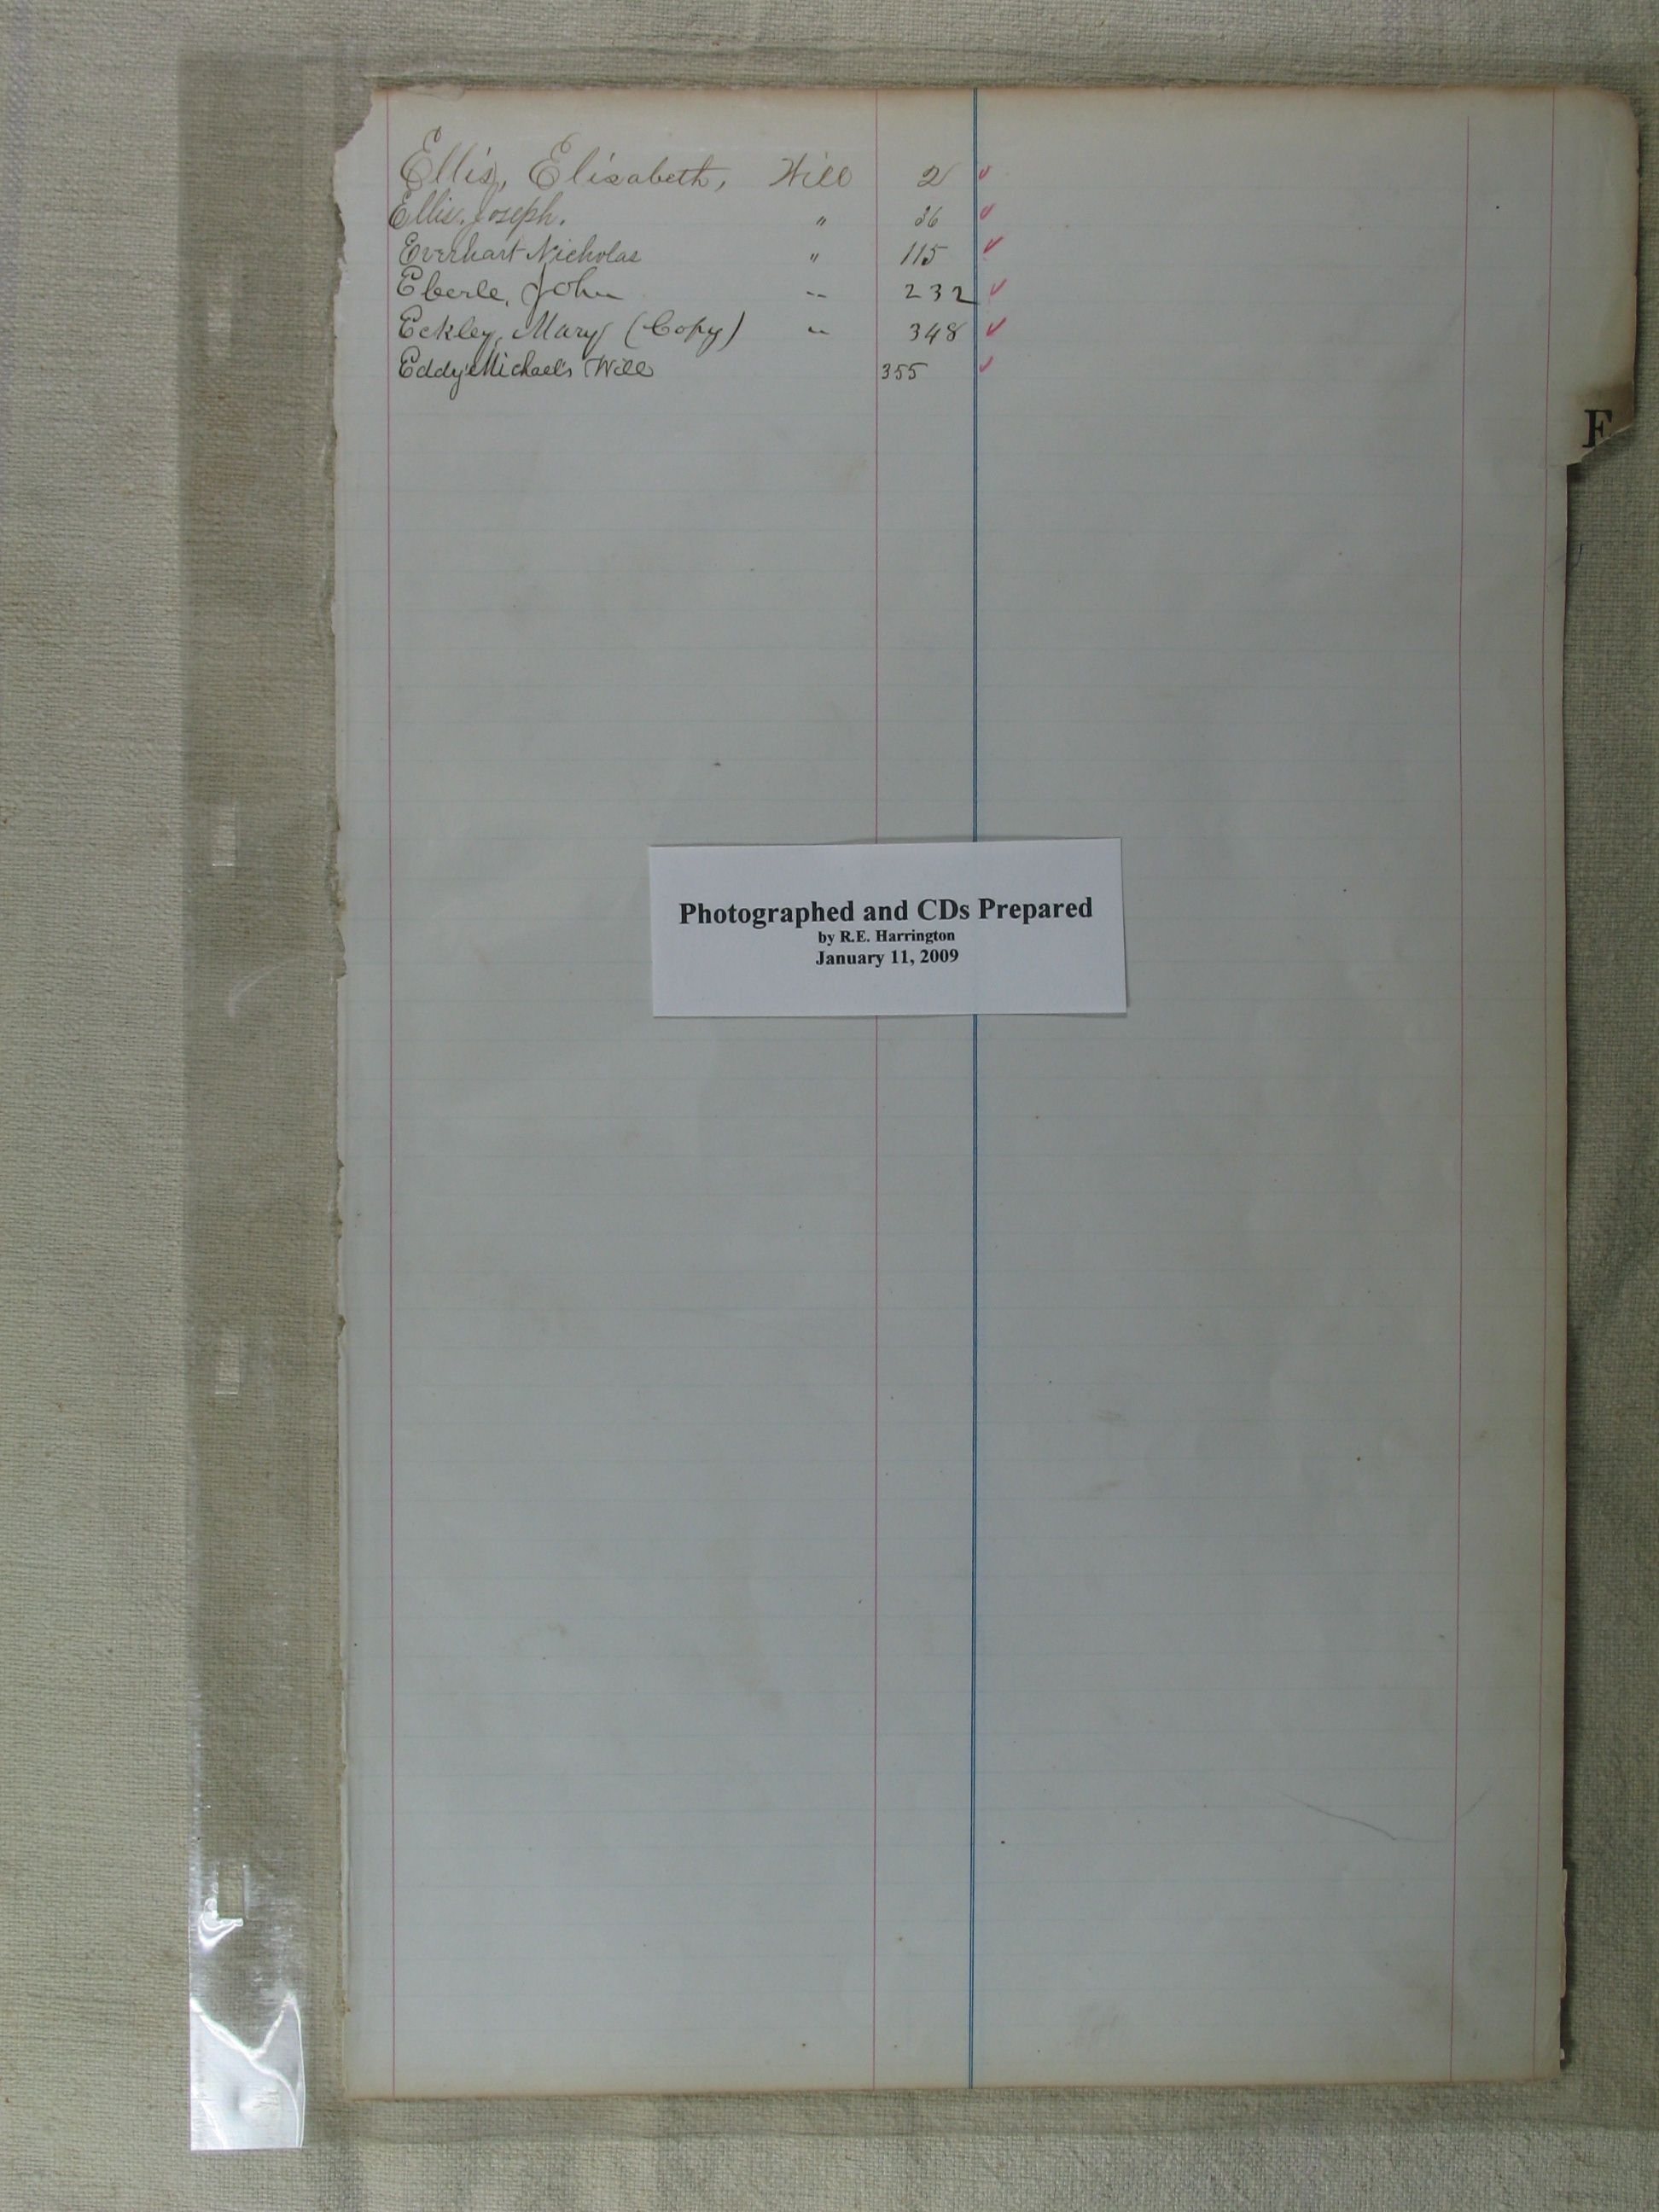 Ellis, Elisabeth, Will 2
Ellis, Joseph. " 36
Everhart Nicholas " 115
Eberle, John " 232
Eckley, Mary (Copy) " 348
Eddy Michael's Will 355
E
Photographed and CDs Prepared
by R.E. Harrington
January 11, 2009